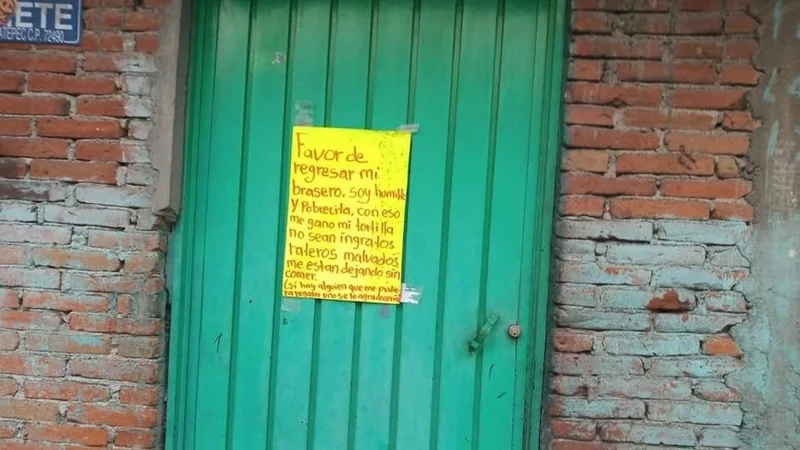 ETE
ATEPEC C.P. 72490
Favor de
regresar mi
brasero, soy humilde
y Pobrecita, con eso
me gano mi tortilla
no sean ingratos
rateros malvados
me estan dejando sin
comer.
(si hay alguien que me pudie
ra regalar uno se lo agradeceria